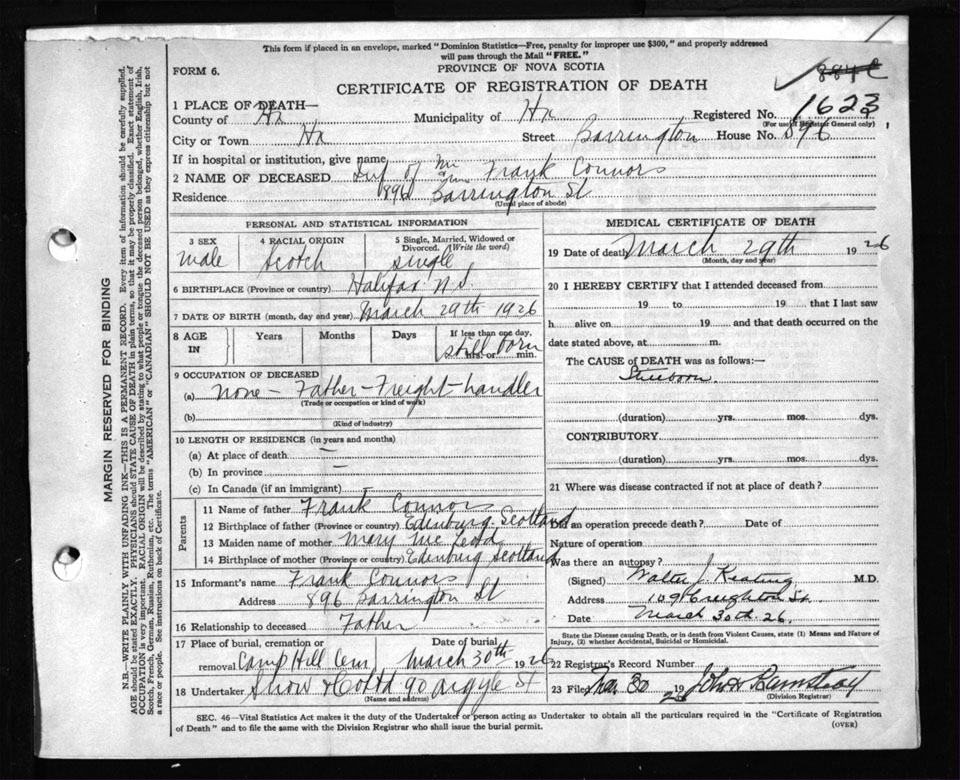 This form if placed in an envelope, marked "Dominion Statistics—Free, penalty for improper use $300," and properly addressed
will pass through the Mail "FREE."
PROVINCE OF NOVA SCOTIA
FORM 6.
CERTIFICATE OF REGISTRATION OF DEATH
1 PLACE OF DEATH—
County of Hx Municipality of Hx Registered No. 1623
(For use of Registrar General only)
City or Town Hx Street Barrington House No. 896
If in hospital or institution, give name
2 NAME OF DECEASED Inf of Mr Frank Connors
Residence 896 Barrington St
(Usual place of abode)
PERSONAL AND STATISTICAL INFORMATION
3 SEX male
4 RACIAL ORIGIN Scotch
5 Single, Married, Widowed or Divorced. (Write the word) single
6 BIRTHPLACE (Province or country) Halifax N.S.
7 DATE OF BIRTH (month, day and year) March 29th 1926
8 AGE IN Years Months Days If less than one day, hrs. or min. still born
9 OCCUPATION OF DECEASED
(a) None — Father — Freight-handler
(Trade or occupation or kind of work)
(b)
(Kind of industry)
10 LENGTH OF RESIDENCE (in years and months)
(a) At place of death —
(b) In province —
(c) In Canada (if an immigrant)
Parents
11 Name of father Frank Connor
12 Birthplace of father (Province or country) Edinburg. Scotland
13 Maiden name of mother Mary Mc Leod
14 Birthplace of mother (Province or country) Edinburg Scotland
15 Informant's name Frank Connors
Address 896 Barrington St
16 Relationship to deceased Father
17 Place of burial, cremation or removal Camp Hill Cem Date of burial March 30th 1926
18 Undertaker Snow & Co Ltd 90 Argyle St
(Name and address)
MEDICAL CERTIFICATE OF DEATH
19 Date of death March 29th 1926
(Month, day and year)
20 I HEREBY CERTIFY that I attended deceased from
19 to 19 that I last saw
h alive on 19 and that death occurred on the
date stated above, at m.
The CAUSE OF DEATH was as follows:—
Stillborn
(duration) yrs. mos. dys.
CONTRIBUTORY
(duration) yrs. mos. dys.
21 Where was disease contracted if not at place of death?
Did an operation precede death? Date of
Nature of operation
Was there an autopsy?
(Signed) Walter J. Keating M.D.
Address 109 Creighton St.
Date March 30th 26.
State the Disease causing Death, or in death from Violent Causes, state (1) Means and Nature of
Injury, (2) whether Accidental, Suicidal or Homicidal.
22 Registrar's Record Number
23 Filed Mar 30 1926 John H
(Division Registrar)
SEC. 46—Vital Statistics Act makes it the duty of the Undertaker or person acting as Undertaker to obtain all the particulars required in the "Certificate of Registration
of Death" and to file the same with the Division Registrar who shall issue the burial permit.
(OVER)
MARGIN RESERVED FOR BINDING
N.B.—WRITE PLAINLY WITH UNFADING INK—THIS IS A PERMANENT RECORD. Every item of information should be carefully supplied.
AGE should be stated EXACTLY. PHYSICIANS should STATE CAUSE OF DEATH in plain terms, so that it may be properly classified. Exact statement of
OCCUPATION is very important. RACIAL ORIGIN will be described by stating to what people or tongue the deceased person belonged, whether English, Irish,
Scotch, French, German, Russian, Ruthenian, etc. The terms "AMERICAN" or "CANADIAN" SHOULD NOT BE USED as they express citizenship but not
a race or people. See instructions on back of Certificate.